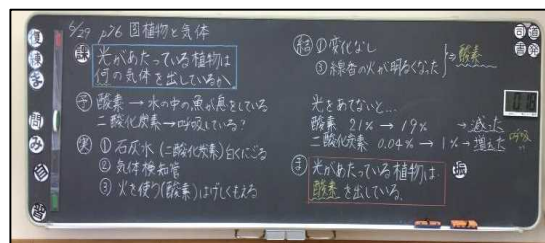 5/29 p76 植物と気体
課 光があたっている植物は
何の気体を出しているか
予 酸素→水の中の魚が息をしている
二酸化炭素→呼吸している?
実 ① 石灰水(二酸化炭素)白くにごる
② 気体検知管
③ 火を使う(酸素)はげしくもえる
結 ① 変化なし
③ 線香の火が明るくなった
⇒酸素
光をあてないと…
酸素 21% → 19% →減った
二酸化炭素 0.04% → 1% →増えた
呼吸
ま 光があたっている植物は、
酸素を出している。